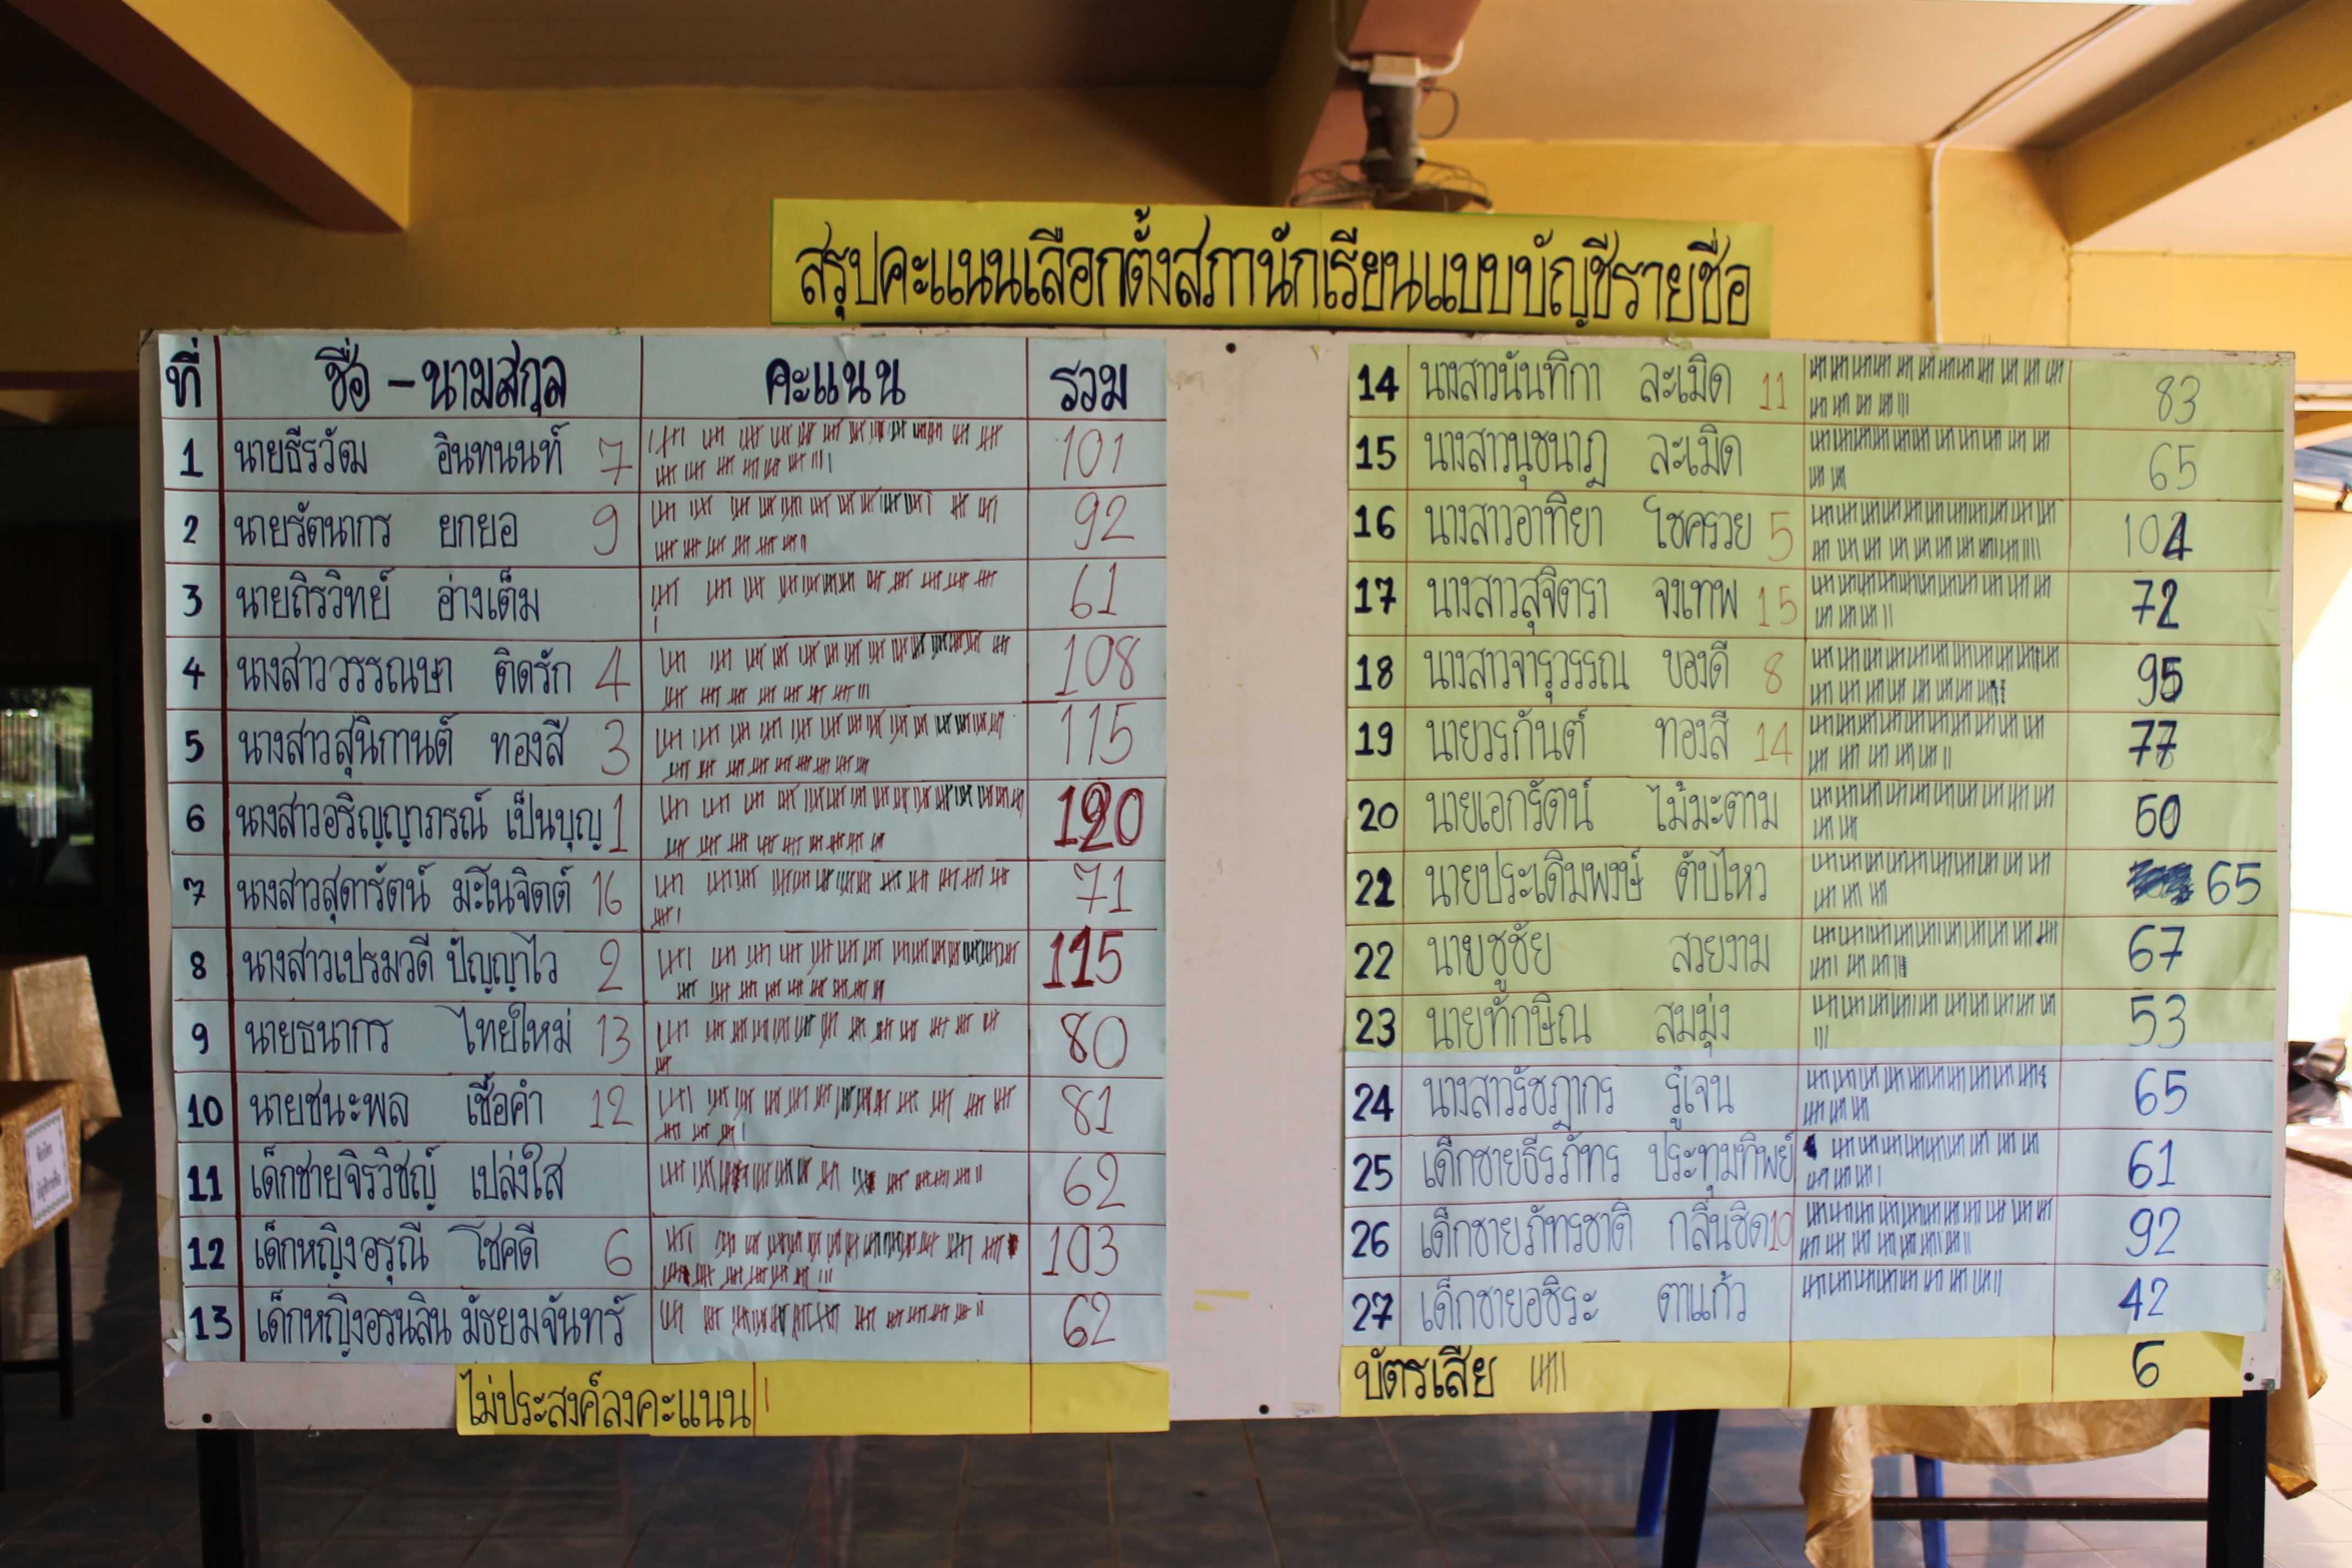 สรุปคะแนนเลือกตั้งสภานักเรียนแบบบัญชีรายชื่อ
ที่ ชื่อ - นามสกุล คะแนน รวม
1 นายธีรวัฒ อินทนนท์ 7 101
2 นายรัตนากร ยกยอ 9 92
3 นายถิรวิทย์ อ่างเต็ม 61
4 นางสาววรรณษา ติดรัก 4 108
5 นางสาวสุนิกานต์ ทองสี 3 115
6 นางสาวอริญญาภรณ์ เป็นบุญ 1 120
7 นางสาวสุดารัตน์ มะโนจิตต์ 16 71
8 นางสาวเปรมวดี ปัญญาไว 2 115
9 นายธนากร ไทยใหม่ 13 80
10 นายชนะพล เชื้อคำ 12 81
11 เด็กชายจิรวิชญ์ เปล่งใส 62
12 เด็กหญิงอรุณี โชคดี 6 103
13 เด็กหญิงอรนลิน มัธยมจันทร์ 62
ไม่ประสงค์ลงคะแนน
14 นางสาวนันทิกา ละเมิด 11 83
15 นางสาวนุชนาฎ ละเมิด 65
16 นางสาวอาทิยา โชครวย 5 104
17 นางสาวสุจิตรา จงเทพ 15 72
18 นางสาวจารุวรรณ ของดี 8 95
19 นายวรกันต์ ทองสี 14 77
20 นายเอกรัตน์ ไม้มะตาม 60
21 นายประเดิมพงษ์ ตับไหว 65
22 นายชูชัย สวยงาม 67
23 นายทักษิณ สมมุ่ง 53
24 นางสาวรัชฎากร รู้เจน 65
25 เด็กชายธีรภัทร ประทุมทิพย์ 61
26 เด็กชายภัทรชาติ กลิ่นชิด 10 92
27 เด็กชายอชิระ ตาแก้ว 42
บัตรเสีย 6